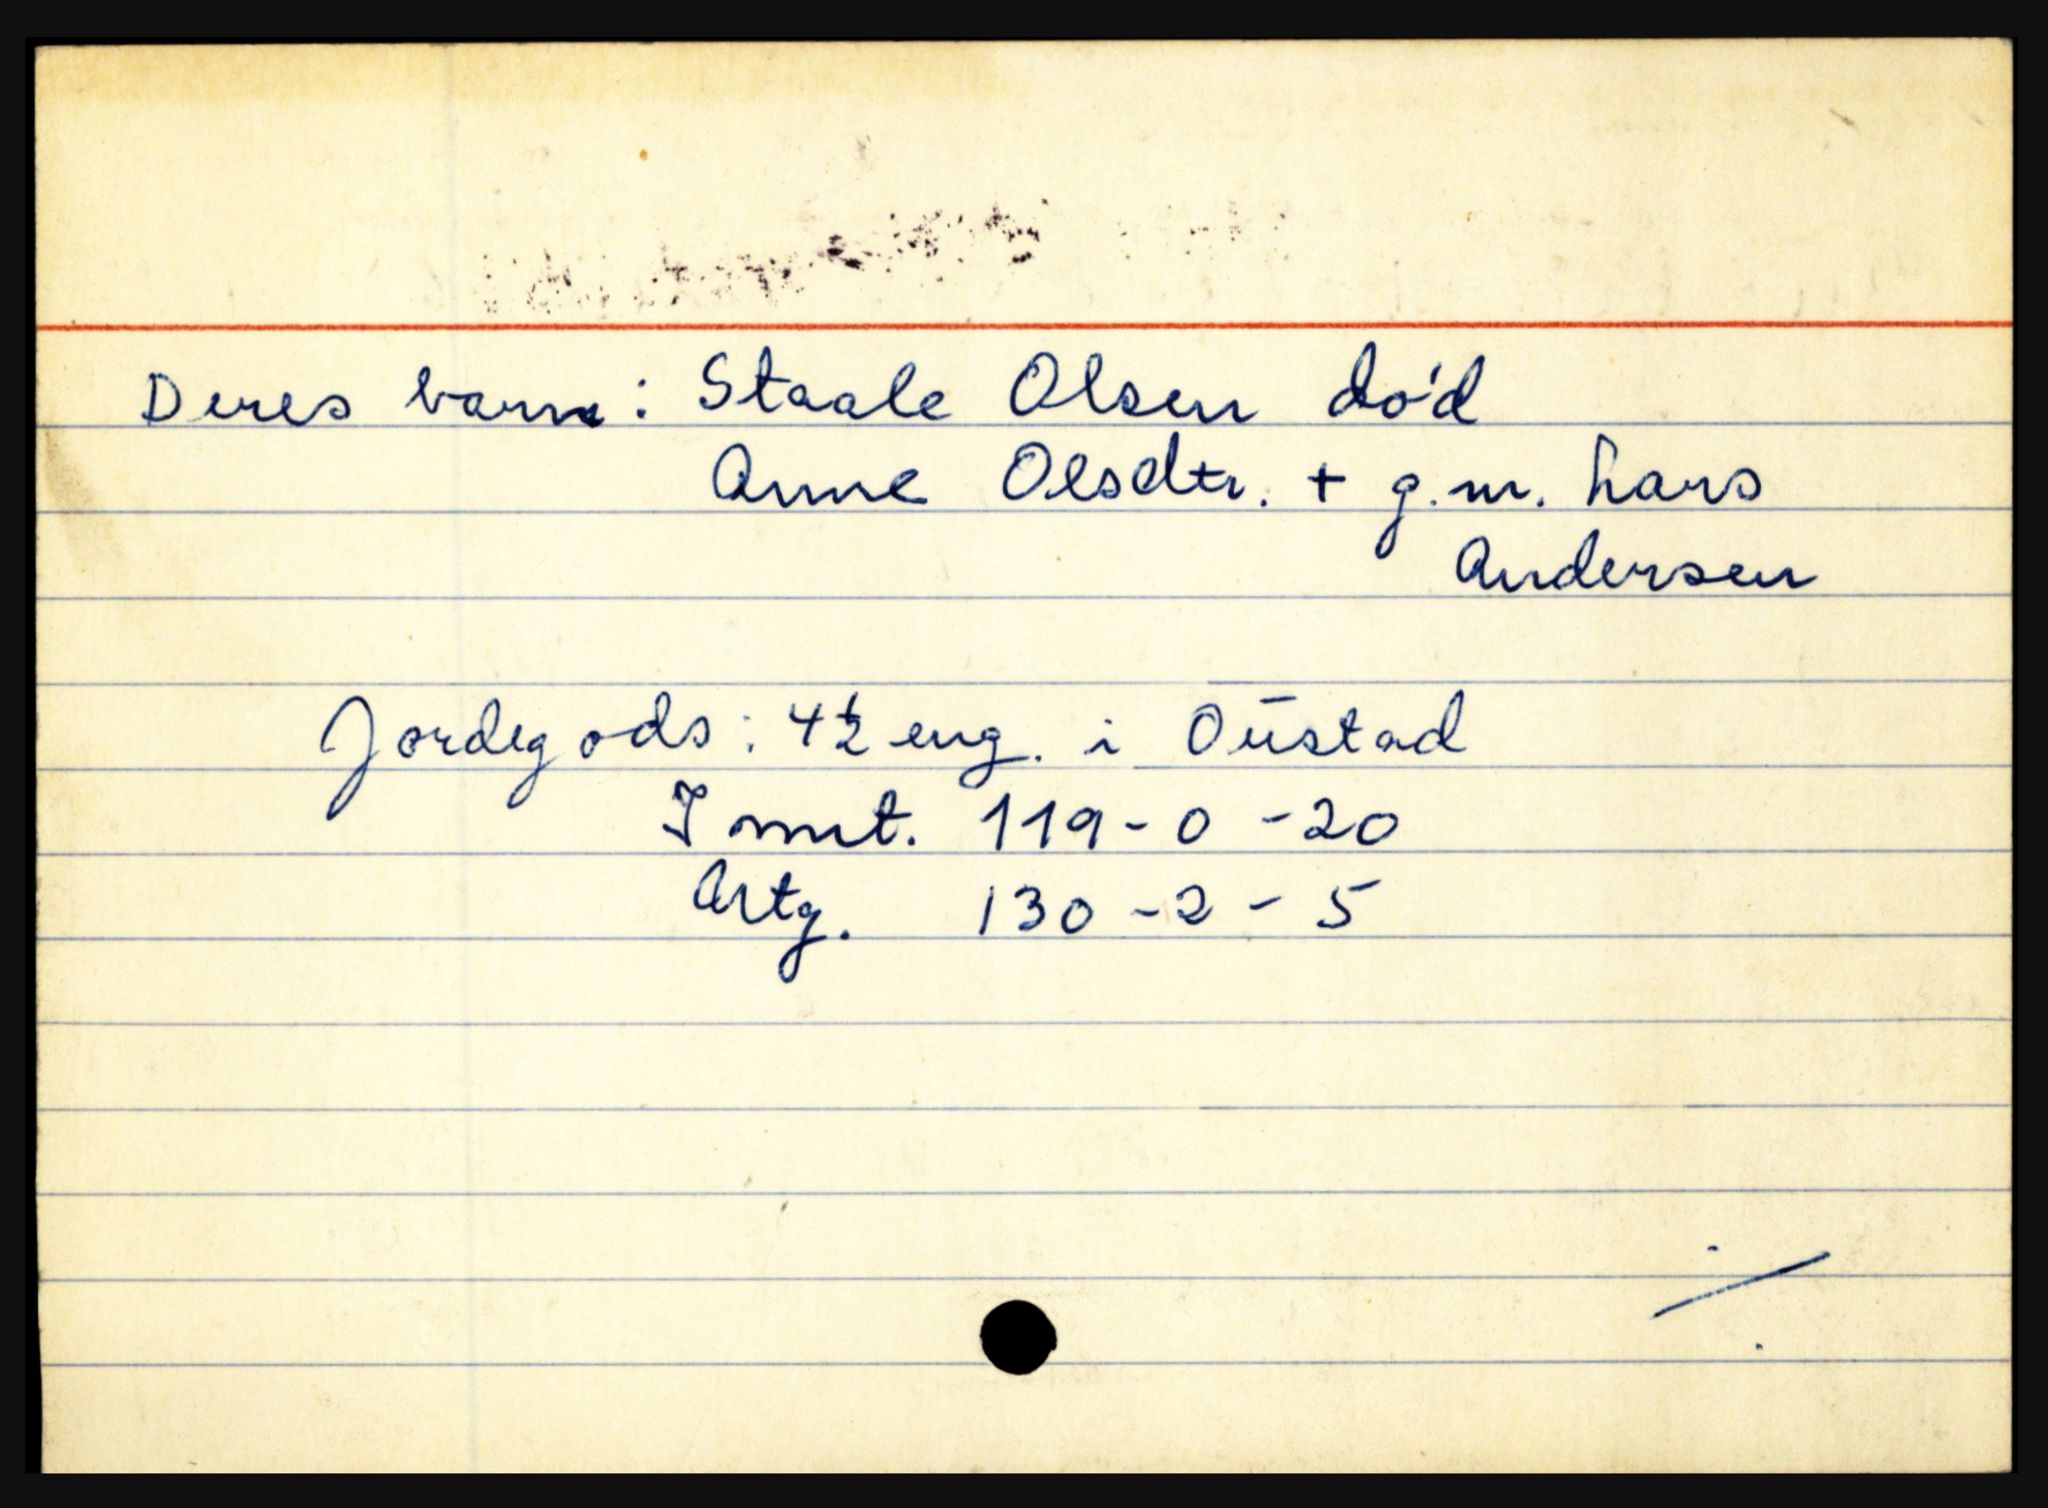 Deres barn: Staale Olsen død
Anne Olsdtr. + g.m. Lars
Andersen
Jordegods: 4½ eng. i Oŭstad
Inmt. 119-0-20
Artg. 130-2-5